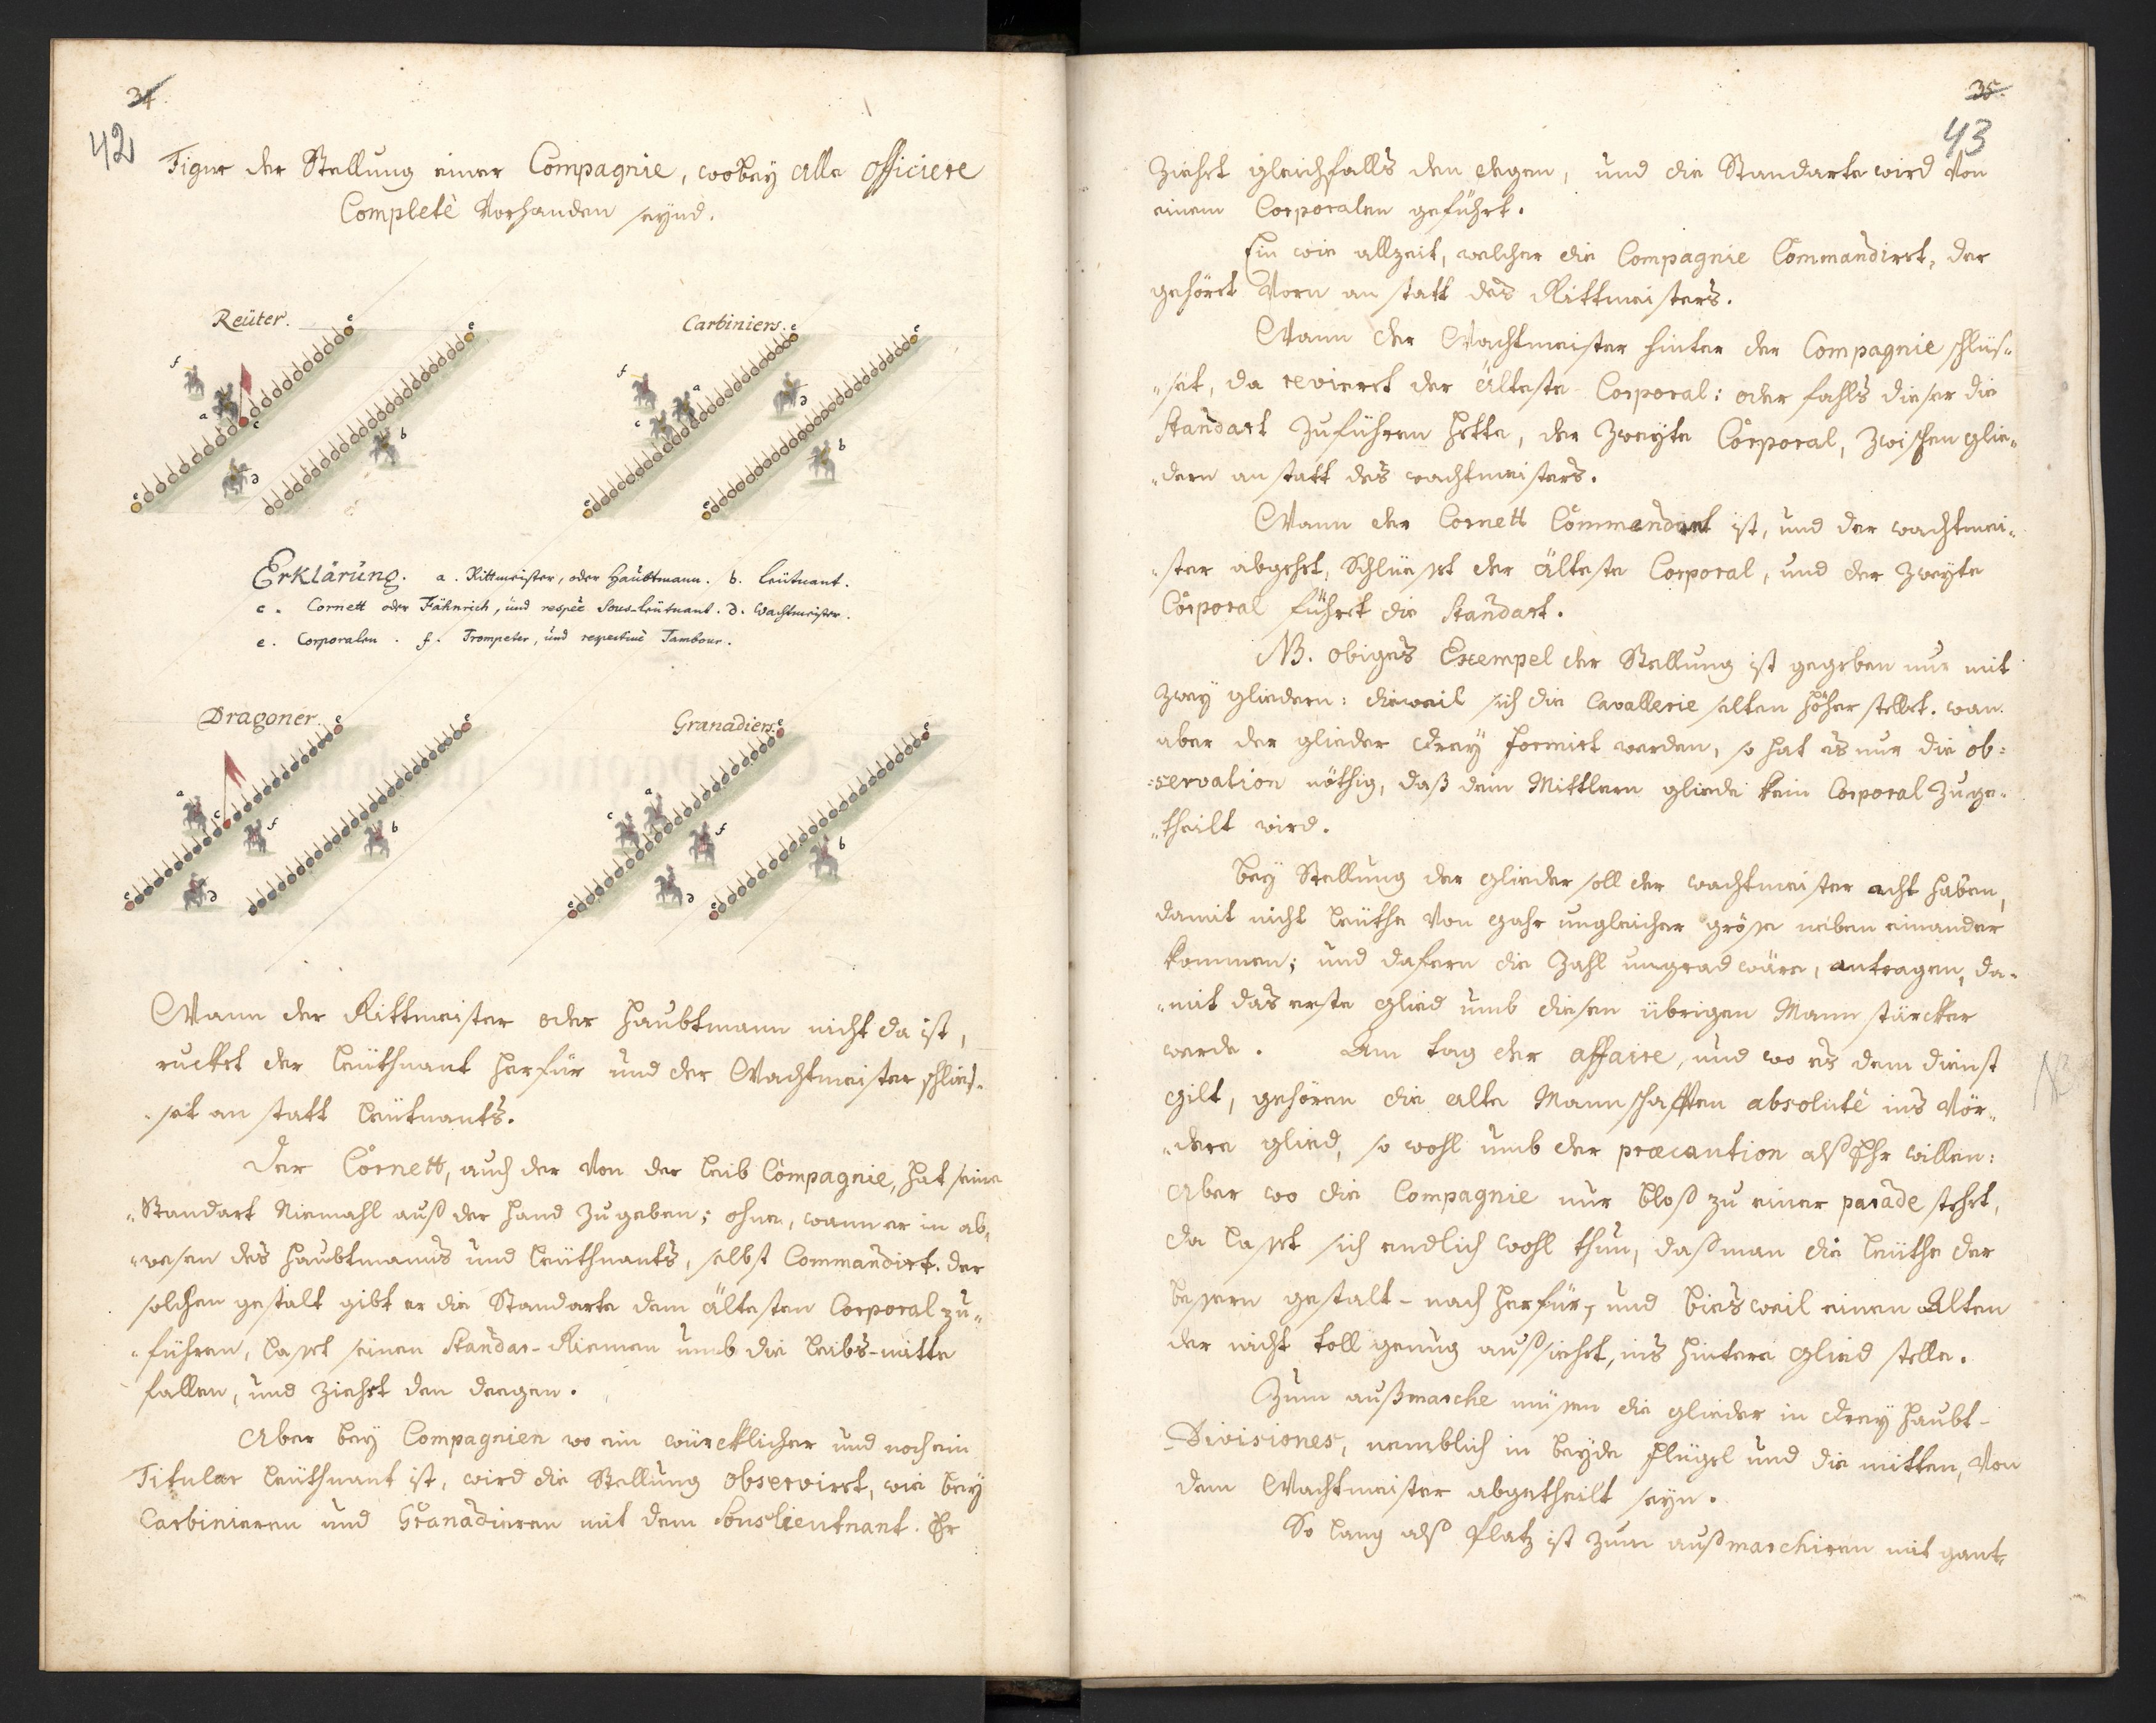 34.
42
Figur der Stellung einer Compagnie, wobey alle Officiere
Completè Vorhanden seynd.
Reüter.
Carbiniers.
Erklärung. a. Rittmeister, oder Haubtmann. b. Leütnant.
c. Cornett oder Fähnrich, und respèe Sous-Leütnant. d. Wachtmeister.
e. Corporalen. f. Trompeter, und respectivè Tambour.
Dragoner.
Granadiers.
Wann der Rittmeister oder Haubtmann nicht da ist,
rucket der Leüthnant herfür und der Wachtmeister schlies-
set an statt Leütnants.
Der Cornett, auch der Von der Leib Compagnie, hat seine
Standart Niemahl auß der Hand zu geben; ohne, wann er in ab-
wesen des Haubtmanns und Leüthnants, selbst Commandirt. der
solchen gestalt gibt er die Standarte dem ältesten Corporal zu-
führen, lasset seinen Standar-Riemen umb die Leibs-mitte
fallen, und ziehet den deegen.
Aber bey Compagnien wo ein würcklicher und noch ein
Titular Leüthnant ist, wird die Stellung observiret, wie bey
Carbinieren und Granadieren mit dem Souslieutnant. Er
35.
43
ziehet gleichfalls den degen, und die Standarte wird Von
einem Corporalen geführt.
Ein wie allzeit, welcher die Compagnie Commandiret, der
gehöret Vorn an statt des Rittmeisters.
Wann der Wachtmeister hinter der Compagnie schlüs-
set, da revieret der Älteste Corporal: oder fahls dieser die
Standart zuführen hette, der Zweyte Corporal, zwischen glie-
dern an statt des wachtmeisters.
Wann der Cornett Commendant ist, und der wachtmei-
ster abgehet, Schlüesset der älteste Corporal, und der Zweyte
Corporal führet die Standart.
NB. obiges Exempel der Stellung ist gegeben nur mit
zwey gliedern: dieweil sich die Cavallerie selten höher stellet. wan
aber der glieder drey formirt werden, so hat es nur die ob-
servation nöthig, daß dem Mittlern gliede kein Corporal zuge-
theilt wird.
Bey Stellung der glieder soll der wachtmeister acht haben,
damit nicht Leüthe Von gahr ungleicher grösse neben einander
kommen; und dafern die Zahl ungrad wäre, antragen, da-
mit das erste glied umb diesen übrigen Mann stärcker
werde. Am tag der affaire, und wo es dem dienst
gilt, gehören die alte Mannschafften absolutè ins Vör-
dere glied, so wohl umb der præcaution alß Ehr willen:
Aber wo die Compagnie nur bloß zu einer parade stehet,
da lasset sich endlich wohl thun, daß man die Leüthe der
bessern gestalt-nach herfür, und biesweil einen Alten
der nicht toll genug aussiehet, ins hintere glied stelle.
Zum außmarche müssen die glieder in drey Haubt-
Divisiones, nemblich in beyde Flügel und die mitten, Von
dem Wachtmeister abgetheilt seyn.
So lang alß Platz ist zum außmarchiren mit gant-